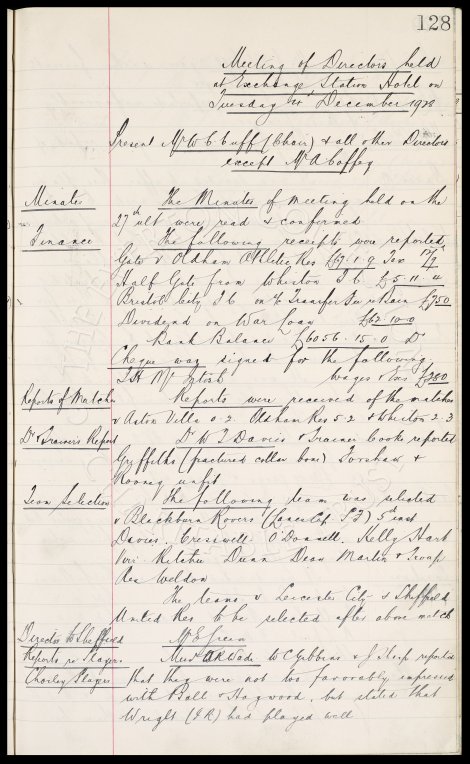 128
Meeting of Directors held
at Exchange Station Hotel on
Tuesday 4th December 1928
Present Mr W C Cuff (Chair) & all other Directors
except Mr A Coffey
Minutes The Minutes of meeting held on the
27th ult were read & confirmed
Finance The following receipts were reported
Gate v Oldham Athletic Res £67.1.9 Tax
Half Gate from Everton F C £5.11.4
Bristol City F C on % Transfer £750
Dividend on War Loan £62.10.0
Bank Balance £6056.15.0 Dr
Cheque was signed for the following
Wages & £380
Reports of Matches Reports were received of the matches
v Aston Villa 0-2. Oldham Res 5-2 & 2-3
Dr & Trainers Report Dr W J Davies & Trainer Cooke reported
Griffiths (fractured collar bone) &
Rooney unfit
Team Selection The following team was selected
v Blackburn Rovers (Lancs Cup S F) 5th inst
Davies. Cresswell O'Donnell. Kelly Hart
Virr Ritchie Dunn Dean Martin & Troup
Res Weldon
The teams v Leicester City & Sheffield
United Res to be selected after above match
Director to Sheffield Mr E Green
Reports re Players Messrs Wade W C Gibbins & J Sharp reported
Chorley Players that they were not too favorably impressed
with Ball & Haywood, but stated that
Wright (I R) had played well